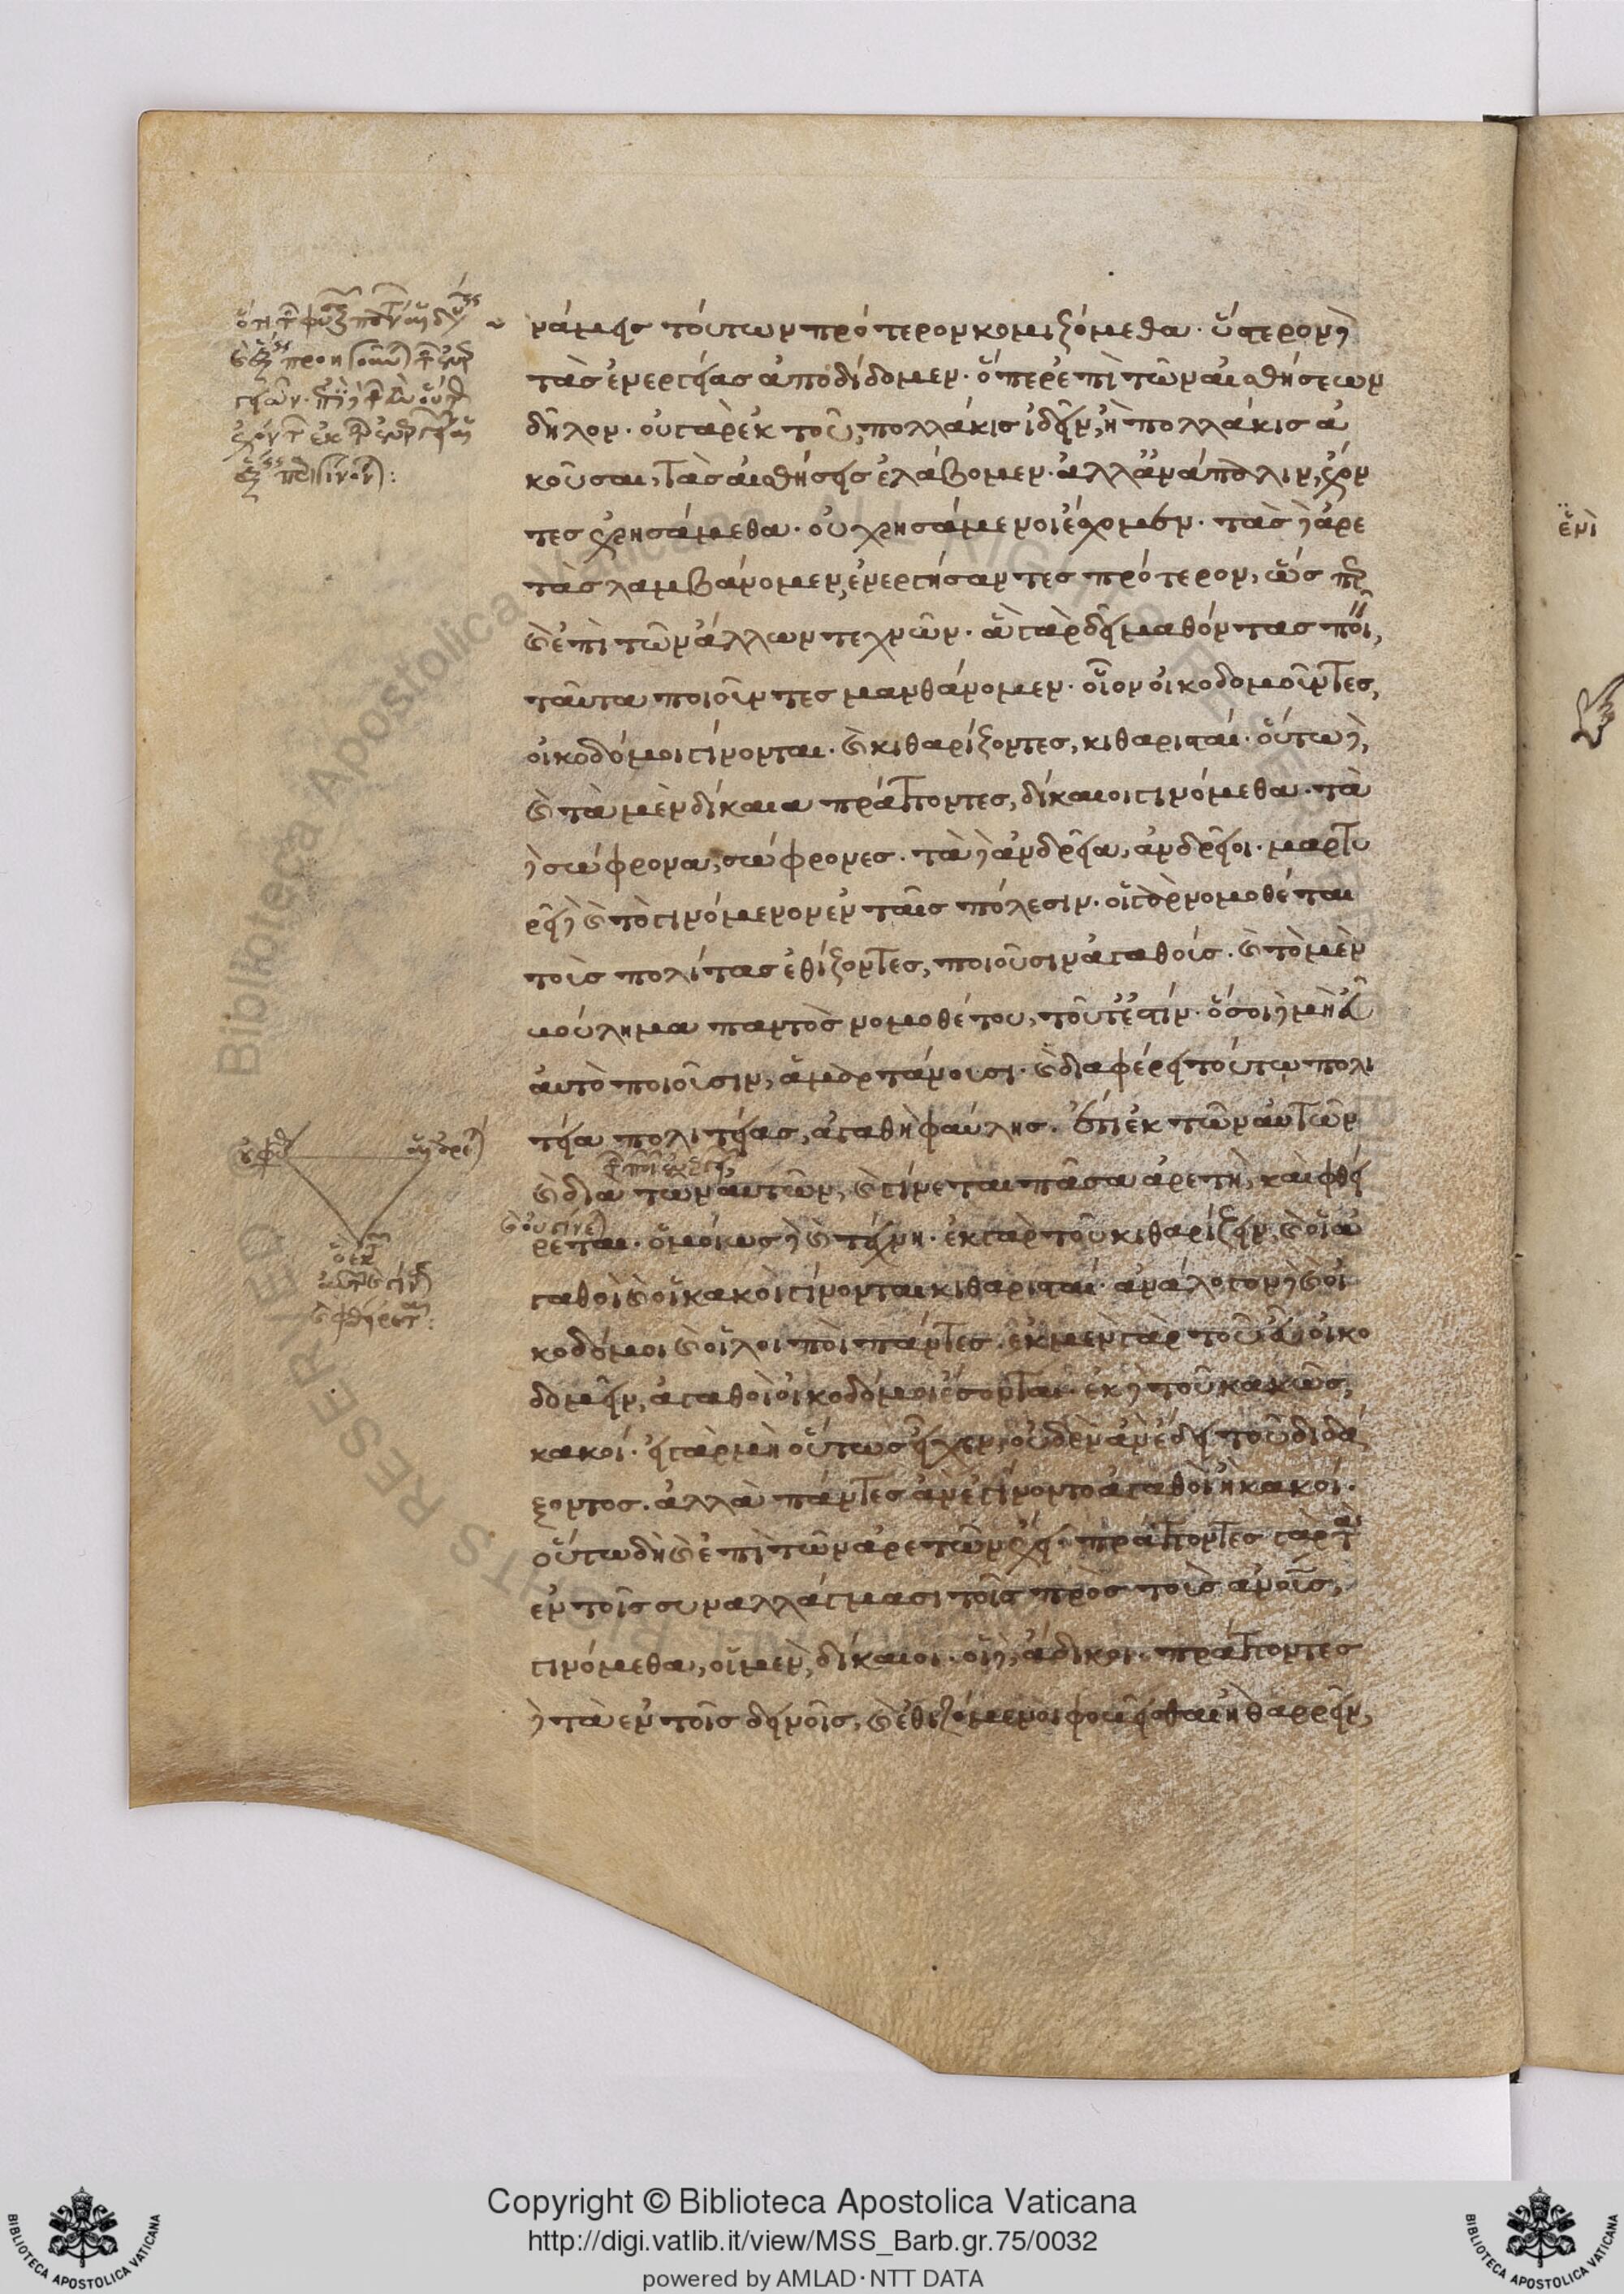 νάμεις τούτων πρότερον κομιζόμεθα· ὕστερον δὲ
τὰς ἐνεργείας ἀποδίδομεν· ὅπερ ἐπὶ τῶν αἰσθήσεων
δῆλον· οὐ γὰρ ἐκ τοῦ πολλάκις ἰδεῖν, ἢ πολλάκις ἀ
κοῦσαι, τὰς αἰσθήσεις ἐλάβομεν· ἀλλ' ἀνάπαλιν, ἔχον
τες ἐχρησάμεθα· οὐ χρησάμενοι ἔχομεν· τὰς δ' ἀρε
τὰς λαμβάνομεν, ἐνεργήσαντες πρότερον, ὥσπερ
καὶ ἐπὶ τῶν ἄλλων τεχνῶν· ἃ γὰρ δεῖ μαθόντας ποι,
ταῦτα ποιοῦντες μανθάνομεν· οἷον οἰκοδομοῦντες,
οἰκοδόμοι γίνονται· καὶ κιθαρίζοντες, κιθαρισταί· οὕτω δὲ,
καὶ τὰ μὲν δίκαια πράττοντες, δίκαιοι γινόμεθα· τὰ
δὲ σώφρονα, σώφρονες· τὰ δὲ ἀνδρεῖα, ἀνδρεῖοι· μαρτυ
ρεῖ δὲ καὶ τὸ γινόμενον ἐν ταῖς πόλεσιν· οἱ γὰρ νομοθέται
τοὺς πολίτας ἐθίζοντες, ποιοῦσιν ἀγαθούς· καὶ τὸ μὲν
βούλημα παντὸς νομοθέτου, τοῦτ' ἐστίν· ὅσοι δὲ μὴ εὖ
αὐτὸ ποιοῦσιν, ἁμαρτάνουσι· καὶ διαφέρει τούτῳ πολι
τεία πολιτείας, ἀγαθὴ φαύλης· ἔτι ἐκ τῶν αὐτῶν
καὶ δια τῶν αὐτῶν, καὶ γίνεται πᾶσα ἀρετὴ, καὶ φθεί
ρεται· ὁμοίως δὲ καὶ τέχνη· ἐκ γὰρ τοῦ κιθαρίζειν, καὶ οἱ ἀ
γαθοὶ καὶ οἱ κακοὶ γίνονται κιθαρισταί· ἀνάλογον δὲ καὶ οἰ
κοδόμοι καὶ οἱ λοιποὶ πάντες· ἐκ μὲν γὰρ τοῦ εὖ οἰκο
δομεῖν, ἀγαθοὶ οἰκοδόμοι ἔσονται· ἐκ δὲ τοῦ κακῶς,
κακοί· εἰ γὰρ μὴ οὕτως εἶχεν, οὐδὲν ἂν ἔδει τοῦ διδά
ξοντος· ἀλλὰ πάντες ἂν ἐγίνοντο ἀγαθοὶ ἢ κακοί·
οὕτω δὴ καὶ ἐπὶ τῶν ἀρετῶν ἔχει· πράττοντες γὰρ τὰ
ἐν τοῖς συναλλάγμασι τοῖς πρὸς τοὺς ἀνους,
γινόμεθα, οἱ μὲν, δίκαιοι· οἱ δὲ, ἄδικοι· πράττοντες
δὲ τὰ ἐν τοῖς δεινοῖς, καὶ ἐθιζόμενοι φοβεῖσθαι ἢ θαρρεῖν,
ἔνι
Copyright © Biblioteca Apostolica Vaticana
http://digi.vatlib.it/view/MSS_Barb.gr.75/0032
powered by AMLAD·NTT DATA
BIBLIOTECA APOSTOLICA VATICANA
BIBLIOTECA APOSTOLICA VATICANA